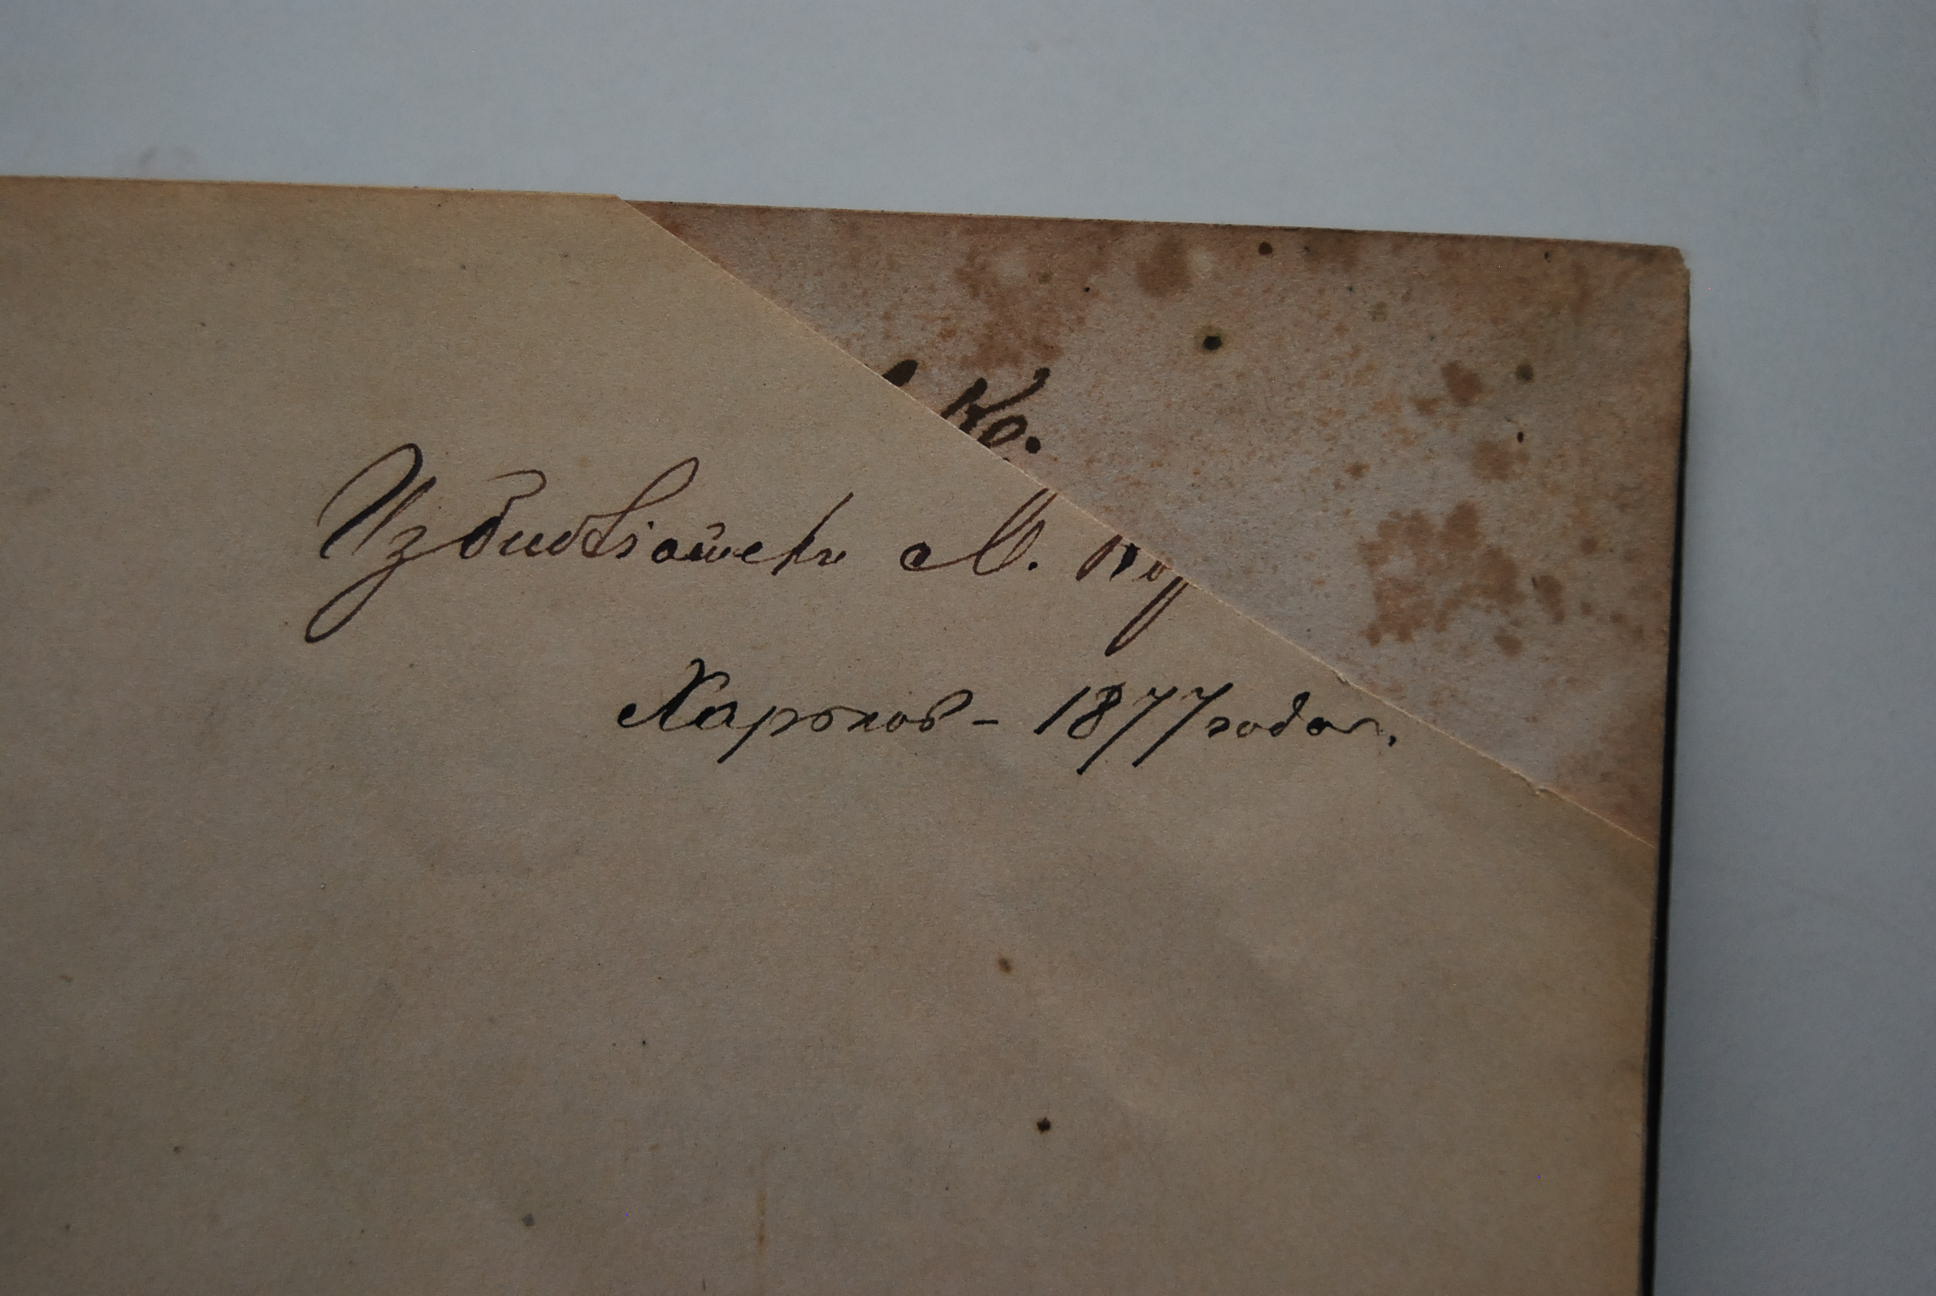 Ко.
Изъ библіотеки М. Ку
Харьков - 1877 года.